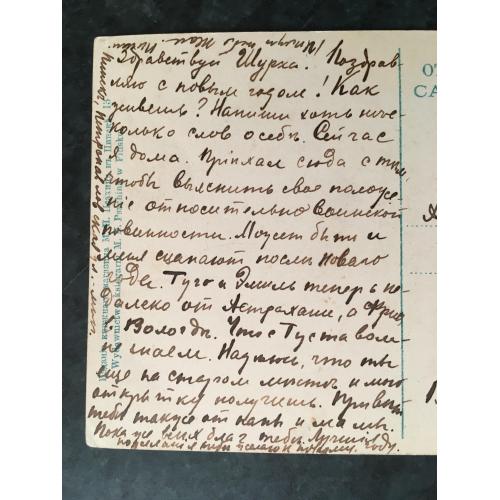 Здравствуй Шурка. Поздрав-
ляю с новым годом! Как
живешь? Напиши хоть нѣс-
колько слов о себѣ. Сейчас
я дома. Приѣхал сюда с тѣм,
чтобы выяснить свое положе-
ніе относительно воинской
повинности. Может быть и
меня сцапают послѣ Новаго
Года. Гуго и Эмиль теперь не-
далеко от Астрахани, а Фриц
в Вологдѣ. Что с Густавом
не знаем. Надѣюсь, что ты
еще на старом мѣстѣ и мою
открытку получишь. Привѣт
тебѣ также от папы и мамы.
Пока же всѣх благ тебѣ.
пожелания к новому году.
Пиши,
ОТ
СА